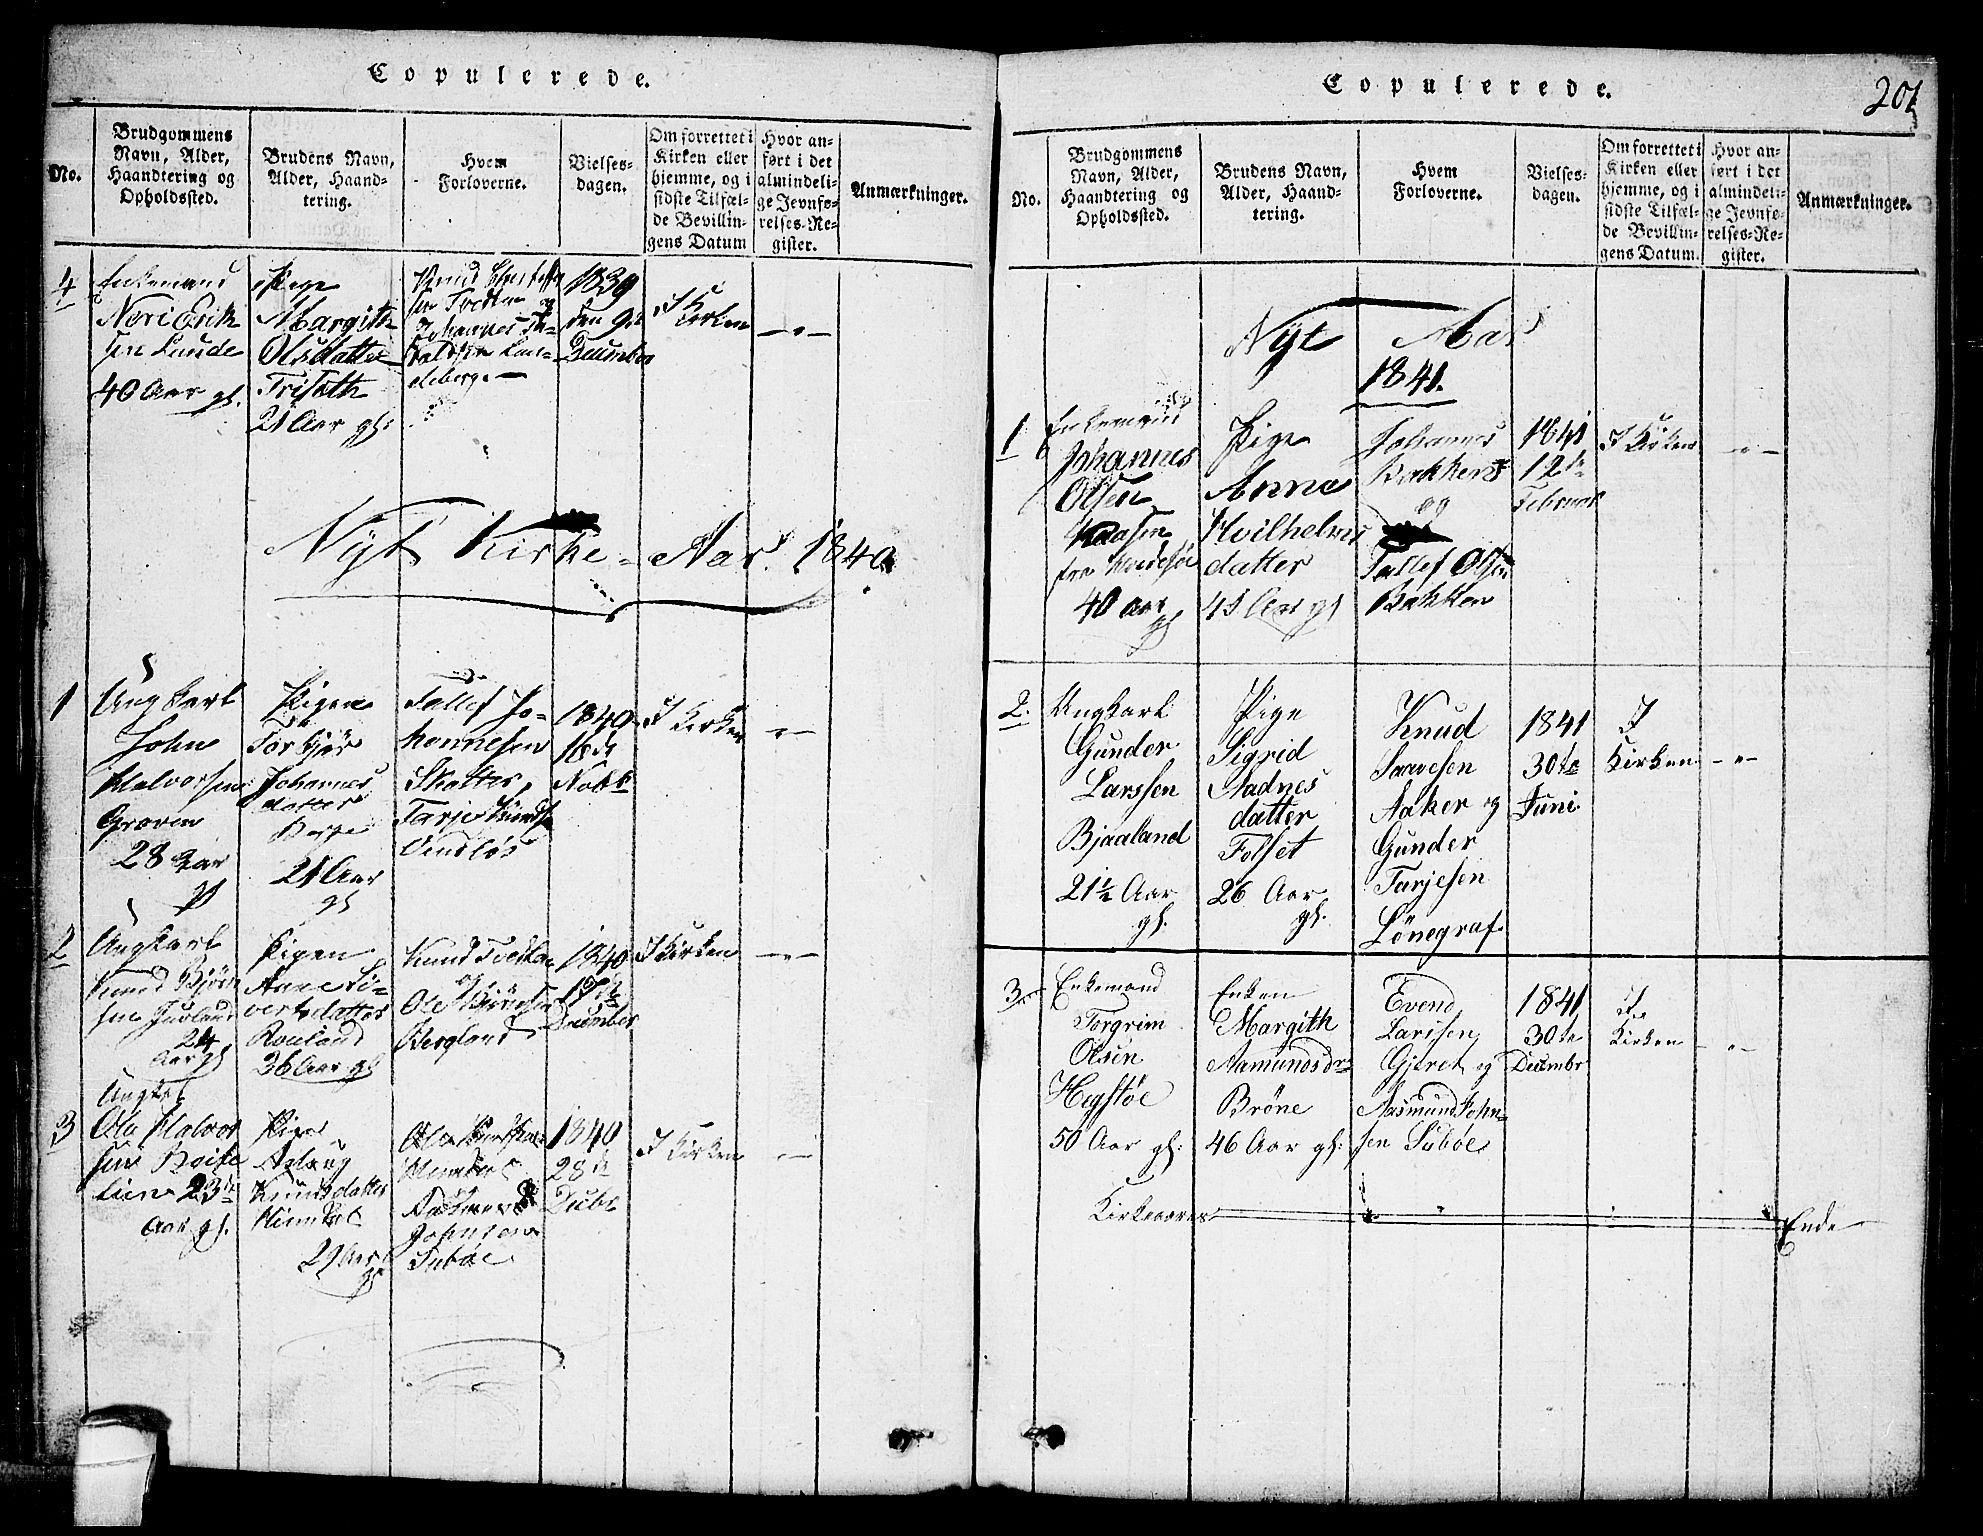 Copulerede.
No.
Brudgommens
Navn, Alder,
Haandtering og
Opholdssted.
Brudens Navn,
Alder, Haand-
tering.
Hvem
Forloverne.
Vielses-
dagen.
Om forrettet i
Kirken eller
hjemme, og i
sidste Tilfæl-
de Bevillin-
gens Datum
Hvor an-
ført i det
almindeli-
ge Jevnfø-
relses-Re-
gister.
Anmærkninger.
4
Enkemand
Neri Erik
sen Lunde
40 Aar gl.
Pige
Margith
Olsdatter
Trisæth
21 Aar gl:
Knud
Johannes
1839
den 9de
December
I Kirken
- " -
Nyt Kirke-Aar. 1840.
1
Ungkarl
John
Halvorsen
Groven
28 Aar
gl
Pigen
Torbjør
Johannes
datter
21 Aar
gl
Tallef Jo-
hannesen
Skatter,
Tarje Knuds
Vindlös
1840
18de
Novbr
I Kirken
- " -
2
Ungkarl
Knud Bjørn
sen Juvland
24
Aar gl
Pigen
Anne Si-
vertsdatter
Rouland
36 Aar gl
Knud
og
Ole Bjørnsen
Bergland
1840
17de
December
I Kirken
- " -
3
Ungkarl
Ole Halvor
sen
23½
Aar gl.
Pigen
Aslaug
Knudsdatter
29 Aar
gl
Ole
Johnsen
Subøe
1840
28de
Decbr
I Kirken
- " -
Copulerede.
201
No.
Brudgommens
Navn, Alder,
Haandtering og
Opholdssted.
Brudens Navn,
Alder, Haand-
tering.
Hvem
Forloverne.
Vielses-
dagen.
Om forrettet i
Kirken eller
hjemme, og i
sidste Tilfæl-
de Bevillin-
gens Datum.
Hvor an-
ført i det
almindeli-
ge Jevnfø-
relses-Re-
gister.
Anmærkninger.
Nyt Aar
1841.
1
Enkemand
Johannes
Olsen
40 Aar
gl
Pige
Anne
Hvilhelms
datter
45 Aar gl
Johannes
Bakken
og
Tallef Olsen
Bakken
1841
12te
Februar
I Kirken
- " -
2.
Ungkarl
Gunder
Larssen
Bjaaland
21½ Aar
gl.
Pige
Sigrid
Aadnes
datter
Folset
26 Aar
gl.
Knud
Saavesen
Aaker og
Gunder
Tarjesen
Lönegraf
1841
30te
Juni
I
Kirken
- " -
3
Enkemand
Torgrim
Olsen
Hegstöe
50 Aar gl:
Enken
Margith
Aamundsdr
Bröne
46 Aar gl:
Evend
Larssen
Gjeret og
Aasmund John-
sen Subøe
1841
30te
Decembr
I
Kirken
- " -
Kirkeaarets
Ende